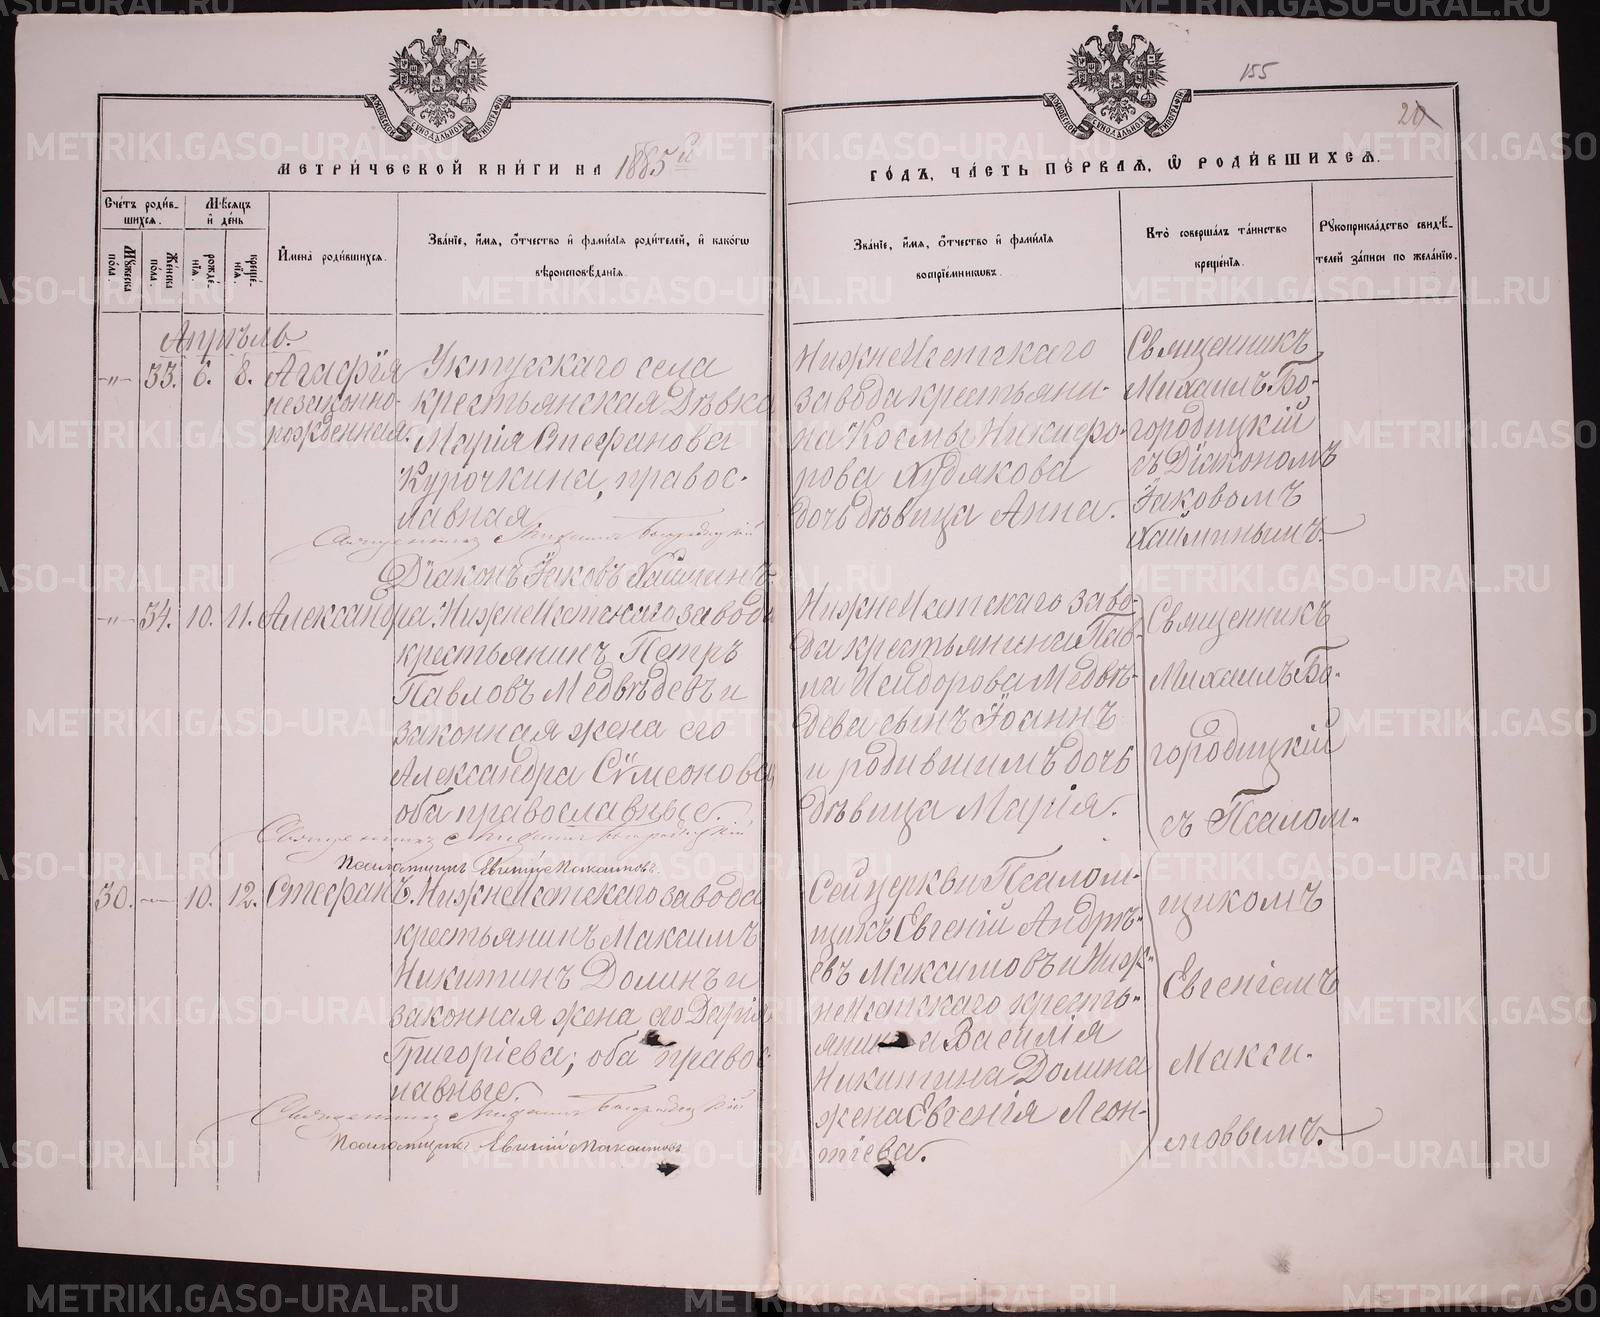 155
20
МЕТРИ́ЧЕСКОЙ КНИ́ГИ НА 1885й
ГО́ДЪ, ЧА́СТЬ ПЕ́РВАЯ, Ѡ РОДИ́ВШИХСЯ.
Сче́тъ роди́в-
шихся.
Мꙋ́жеска
по́ла.
Же́нска
по́ла.
Мѣ́сяцъ
и́ де́нь
рожде́-
нїя.
креще́-
нїя.
И́мена̀ роди́вшихся.
Зва́нїе, и́мя, ѻ҆́тчество и҆ фами́лїя роди́телей, и҆ како́гѡ
вѣроисповѣ́данїя.
Зва́нїе, и́мя, ѻ҆́тчество и҆ фами́лїя
воспрїе́мниковъ.
Кто̀ соверша́лъ та́инство
креще́нїя.
Рꙋкоприкла́дство свидѣ́-
телей за́писи по жела́нїю.
Апрѣль.
-"- 33. 6. 8. Агафія
незаконно-
рожденная.
Уктусскаго села
крестьянская Дѣвка
Марія Стефанова
Курочкина, правос-
лавная
Священникъ Михаилъ Богородицкій
Діаконъ Іаковъ Хайминъ
НижнеИсетскаго
завода крестьяни-
на Космы Никифо-
рова Худякова
дочь дѣвица Анна.
Священникъ
Михаилъ Бо-
городицкій
съ Діакономъ
Іаковомъ
Хайминымъ.
-"- 34. 10. 11. Александра.
НижнеИсетскаго завода
крестьянинъ Петръ
Павловъ Медвѣдевъ и
законная жена его
Александра Сѵмеонова
оба православные.
Священникъ Михаилъ Богородицкій
Псаломщикъ Евгеній Максимовъ.
НижнеИсетскаго заво-
да крестьянина Пав-
ла Исидорова Медвѣ-
дева сынъ Іоаннъ
и родившимъ дочь
дѣвица Марія.
Священникъ
Михаилъ Бо-
городицкій
съ Псалом-
щикомъ
Евгеніемъ
Макси-
мовымъ.
30. -"- 10. 12. Стефанъ.
НижнеИсетскаго завода
крестьянинъ Максимъ
Никитинъ Долинъ и
законная жена его Дарія
Григоріева; оба правос-
лавные.
Священникъ Михаилъ Богородицкій
Псаломщикъ Евгеній Максимовъ
Сей церкви Псалом-
щикъ Евгеній Андрѣ-
евъ Максимовъ и Ниж-
неИсетскаго кресть-
янина Василія
Никитина Долина
жена Евгенія Леон-
тіева.